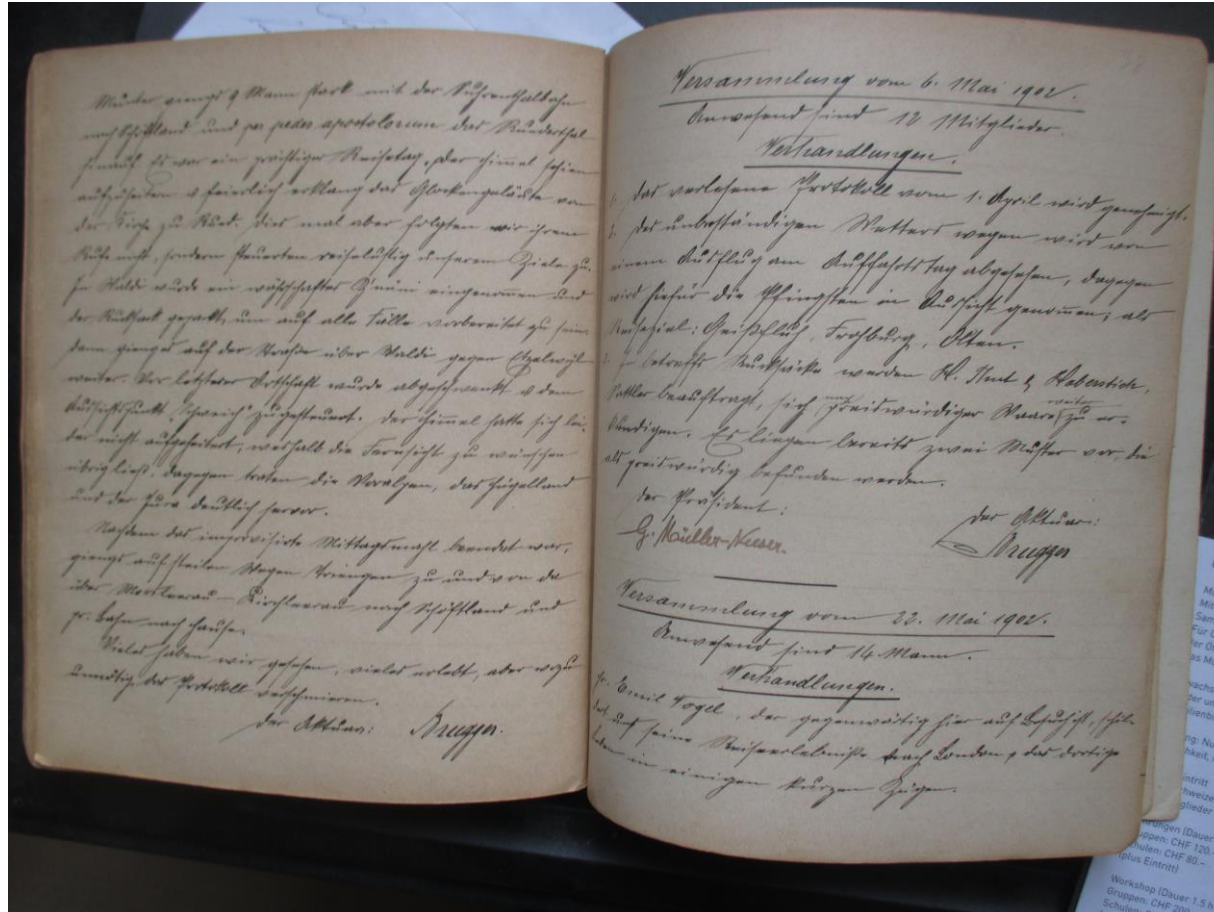 Munter giengs 9 Mann stark mit der Suhrenthalbahn
nach Schöftland und per pedes apostolorum das Ruederthal
hinauf. Es war ein prächtiger Reisetag, der Himmel schien
aufzuheitern & feierlich erklang das Glockengeläute von
der Kirche zu Rued. Dies mal aber folgten wir ihrem
Rufe nicht, sondern steuerten reiselustig unserem Ziele zu.
In Waldi wurde ein währschaftes Z'nüni eingenommen und
der Rucksack gepackt, um auf alle Fälle vorbereitet zu sein,
dann giengs auf der Straße über Waldi gegen Etzelwyl
weiter. Vor letzterer Ortschaft wurde abgeschwenkt & dem
Aussichtspunkt "Schweich" zugesteuert. Der Himmel hatte sich lei-
der nicht aufgeheitert, weshalb die Fernsicht zu wünschen
übrig ließ, dagegen traten die Voralpen, das Hügelland
und der Jura deutlich hervor.
Nachdem das improvisirte Mittagsmahl beendet war,
giengs auf steilen Wegen Triengen zu und von da
über Moosleerau - Kirchleerau nach Schöftland und
pr. Bahn nach Hause.
Vieles haben wir gesehen, vieles erlebt, aber wozu
unnötig das Protokoll verschmieren.
Der Aktuar: Brugger.
Versammlung vom 6. Mai 1902.
Anwesend sind 12 Mitglieder.
Verhandlungen.
1. Das verlesene Protokoll vom 1. April wird genehmigt.
2. Des unbeständigen Wetters wegen wird von
einem Ausflug am Auffahrtstag abgesehen, dagegen
wird hiefür die Pfingsten in Aussicht genommen; als
Reiseziel: Geißfluh, Frohburg, Olten.
3. In betreffs Rucksäcke werden H. & Haberstich,
Sattler beauftragt, sich nach preiswürdiger Waare weiter zu er-
kundigen. Es liegen bereits zwei Muster vor, die
als preiswürdig befunden werden.
Der Präsident:
Der Aktuar:
G. Müller-
Brugger
Versammlung vom 22. Mai 1902.
Anwesend sind 14 Mann.
Verhandlungen.
Hr. Emil Vogel, der gegenwärtig hier auf Besuch ist, schil-
dert uns seine Reiseerlebniße nach London & das dortige
Leben in einigen kurzen Zügen.